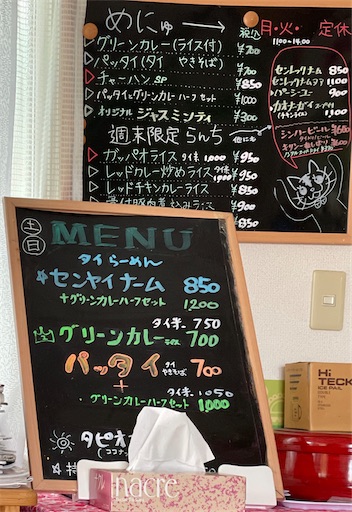 めにゅー → 税込
グリーンカレー(ライス付) ¥700
パッタイ(タイやきそば) ¥700
チャーハン SP ¥850
パッタイとグリーンカレー ハーフセット ¥1000
オリジナル ジャスミンティ ¥300
週末限定らんち
ガッパオライス タイ米 1,000 ¥950
レッドカレー炒めライス ¥950
レッドチキンカレーライス ¥850
¥900
850
月・火・定休
11:00~14:00
センレックナーム 850
1100
パーシーユー 900
カオナガイ
1100
シンハービール ¥600
土 日
MENU
タイらーめん
センヤイナーム 850
+グリーンカレーハーフセット 1,200
タイ米 750
グリーンカレー ライス 700
パッタイ タイやきそば 700
+ タイ米 1050
グリーンカレーハーフセット 1,000
タピオ
Hi
TECK
ICE PAIL
nacre